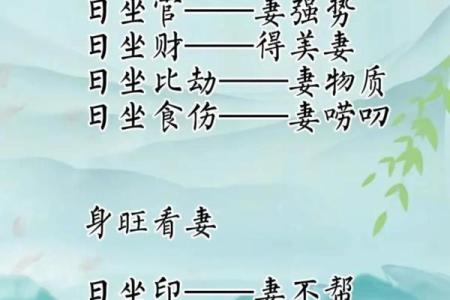 日坐官——妻强势
日坐财——得美妻
日坐比劫——妻物质
日坐食伤——妻唠叨
身旺看妻
日坐印——妻不帮